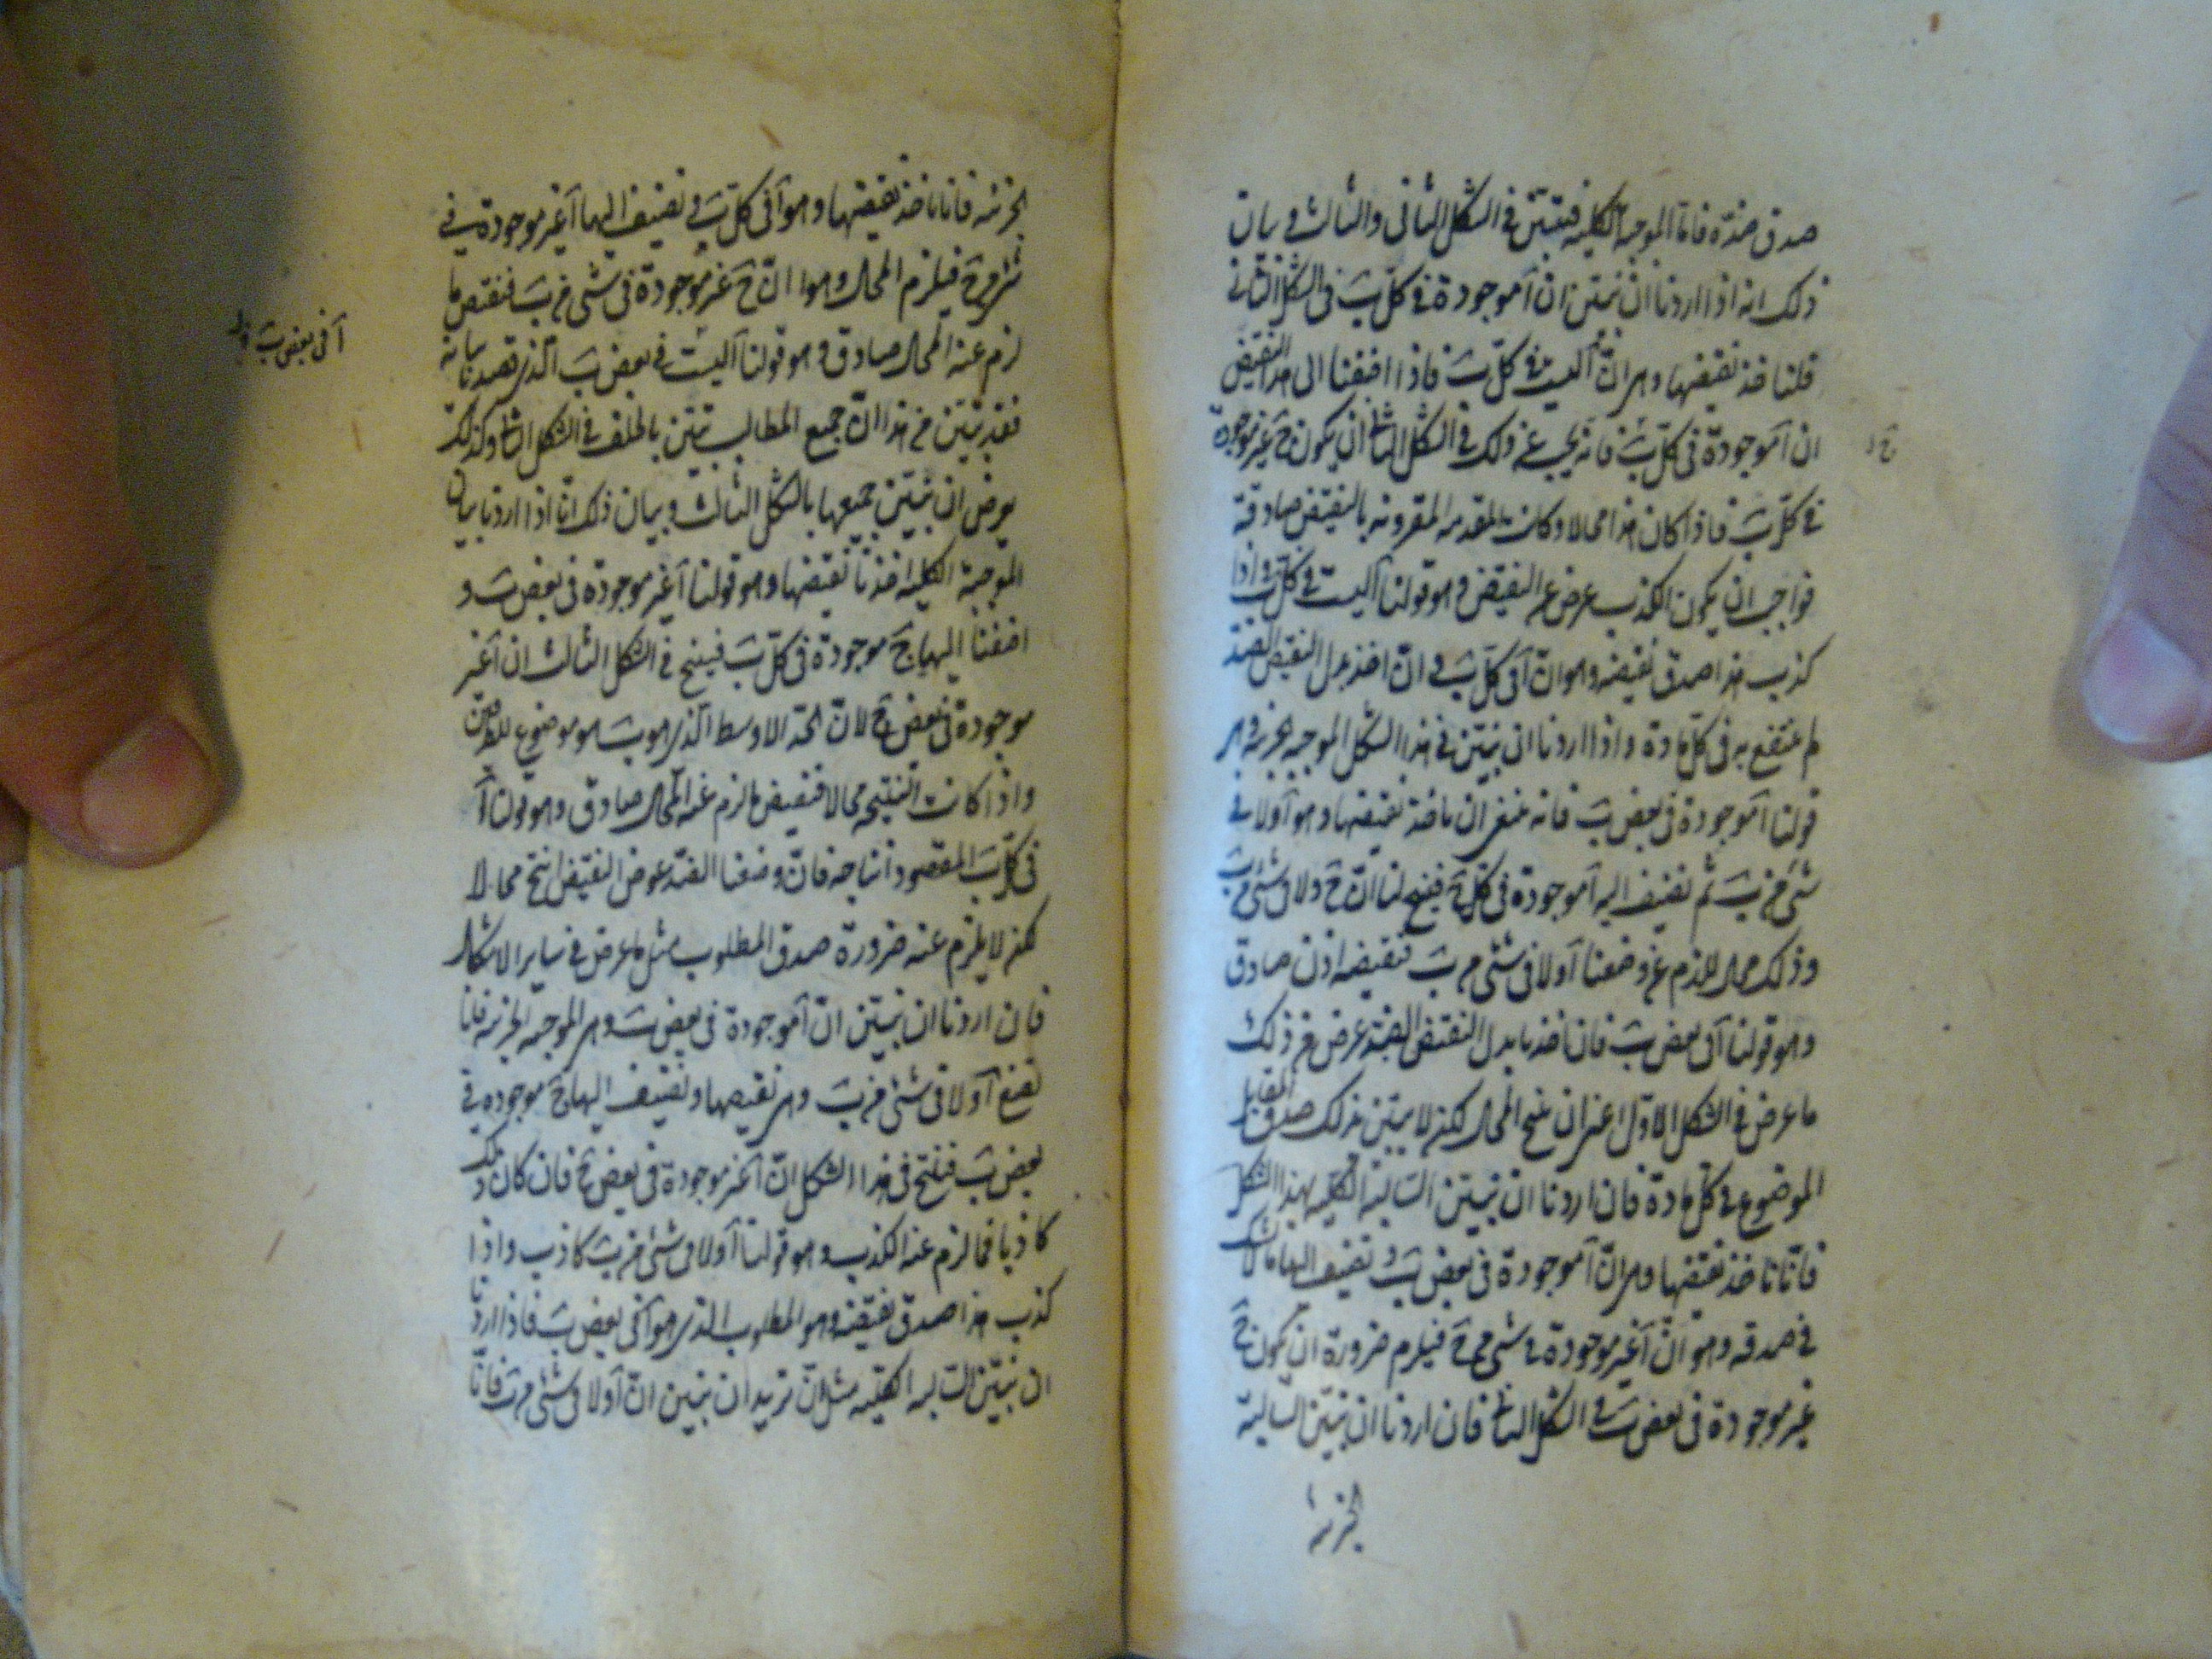 صدق ضده فاما الموجبة الكلية فتبين في الشكل الثاني والثالث وبيان
ذلك انه اذا اردنا ان نبين ان آ موجودة في كل ب في الشكل الثاني
قلنا خذ نقيضها وهو ان آ ليست في كل ب فاذا اضفنا الى هذا النقيض
ان آ موجودة في كل ب فانه يجب عن ذلك في الشكل الثاني ان يكون ح غير موجودة
ح د
في كل ب فاذا كان هذا محالا وكانت المقدمة المقرونة بالنقيض صادقة
فواجب ان يكون الكذب عرض عن النقيض وهو قولنا آ ليست في كل ب واذا
كذب هذا صدق نقيضه وهو ان آ في كل ب وان اخذ بدل النقيض الضد
لم ينتفع به في كل مادة واذا اردنا ان نبين في هذا الشكل الموجبة الجزئية وهي
قولنا آ موجودة في بعض ب فانه ينبغي ان ناخذ نقيضها وهو آ ولا في
شئ من ب ثم نضيف اليه آ موجودة في كل ح فينتج لنا ان ح ولا في شئ من ب
وذلك محال للزم عن وضعنا آ ولا في شئ من ب فنقيضه اذن صادق
وهو قولنا آ في بعض ب فان اخذنا بدل النقيض الضد عرض من ذلك
ما عرض في الشكل الاول اعني ان ينتج المحال لكنه لا يبين بذلك صدق المقابل
الموضوع في كل مادة فان اردنا ان نبين السالبة الكلية بهذا الشكل
فانا ناخذ نقيضها وهو ان آ موجودة في بعض ب ونضيف اليها ما لا شك
في صدقه وهو ان آ غير موجودة في شئ من ح فيلزم ضرورة ان يكون ح
غير موجودة في بعض ب في الشكل الثاني فان اردنا ان نبين السالبة
الجزئية
الجزئية فانا ناخذ نقيضها وهو آ في كل ب ونضيف اليها آ غير موجودة في
شئ من ح فيلزم المحال وهو ان ح غير موجودة في شئ من ب فنقيض ما
لزم عنه المحال صادق وهو قولنا آ ليست في بعض ب الذي قصدنا بيانه
آ في بعض ب
فقد تبين من هذا ان جميع المطالب تبين بالخلف في الشكل الثاني وكذلك
يعرض ان نبين جميعها بالشكل الثالث وبيان ذلك انا اذا اردنا بيان
الموجبة الكلية اخذنا نقيضها وهو قولنا آ غير موجودة في بعض ب و
اضفنا اليها ح موجودة في كل ب فينتج في الشكل الثالث ان آ غير
موجودة في بعض ح لان الحد الاوسط الذي هو ب هو موضوع للطرفين
واذا كانت النتيجة محالا فنقيض ما لزم عنه المحال صادق وهو قولنا آ
في كل ب المقصود انتاجه فان وضعنا الضد عوض النقيض انتج محالا
لكنه لا يلزم عنه ضرورة صدق المطلوب مثل ما عرض في ساير الاشكال
فان اردنا ان نبين ان آ موجودة في بعض ب وهي الموجبة الجزئية فانا
نضع آ ولا في شئ من ب وهي نقيضها ونضيف اليها ح موجودة في
بعض ب فينتج في هذا الشكل ان آ غير موجودة في بعض ح فان كان ذلك
كاذبا فما لزم عنه الكذب وهو قولنا آ ولا في شئ من ب كاذب واذا
كذب هذا صدق نقيضه وهو المطلوب الذي هو آ في بعض ب فاذا اردنا
ان نبين السالبة الكلية مثل ان نريد ان نبين ان آ ولا في شئ من ب فانا